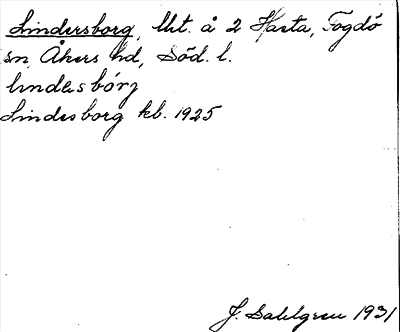 Lindersborg, lht. å 2 Harta, Fogdö
sn Åkers hd, Söd. l.
lındasbórj
Lindesborg kb. 1925
J. Sahlgren 1931